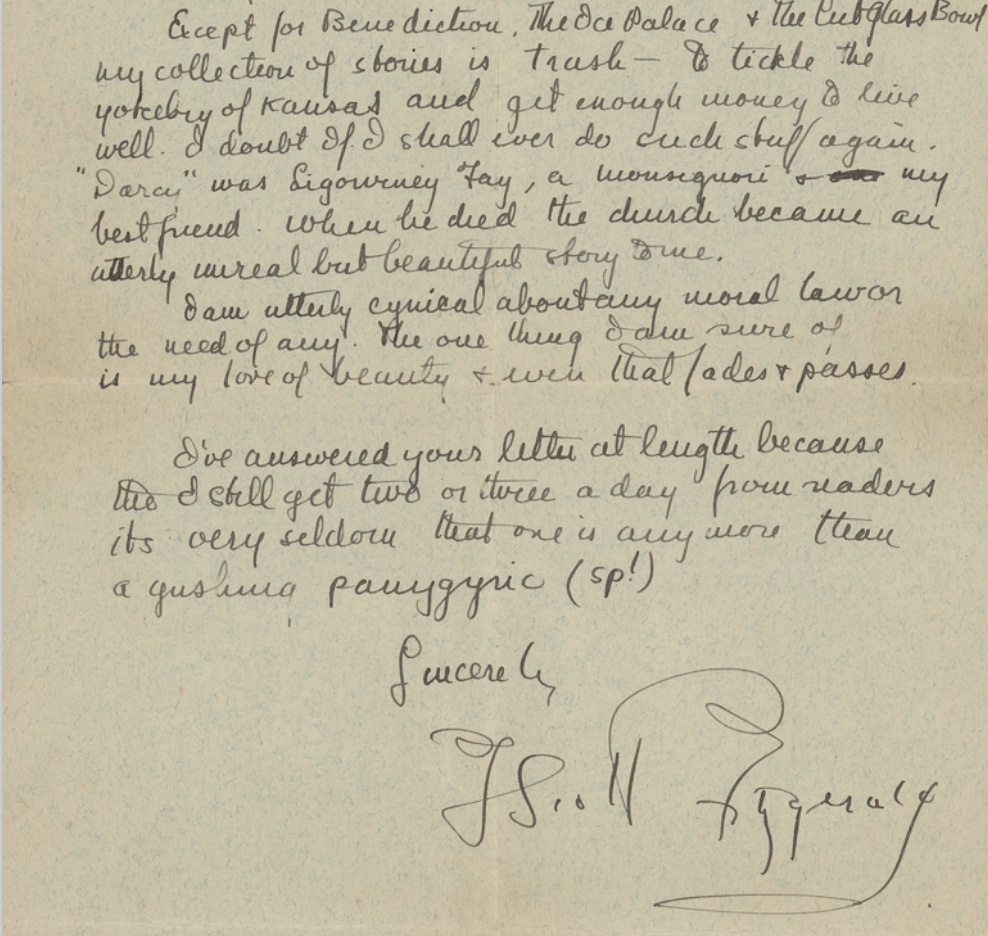 Except for Benediction, The Ice Palace + The Cut Glass Bowl
my collection of stories is trash — to tickle the
yokelry of Kansas and get enough money to live
well. I doubt if I shall ever do such stuff again.
"Darcy" was Sigourney Fay, a monsignori + my
best friend. When he died the church became an
utterly unreal but beautiful story to me.
I am utterly cynical about any moral law or
the need of any. The one thing I am sure of
is my love of beauty + even that fades + passes.
I've answered your letter at length because
tho I still get two or three a day from readers
its very seldom that one is any more than
a gushing panygyric (sp!)
Sincerely
F Scott Fitzgerald